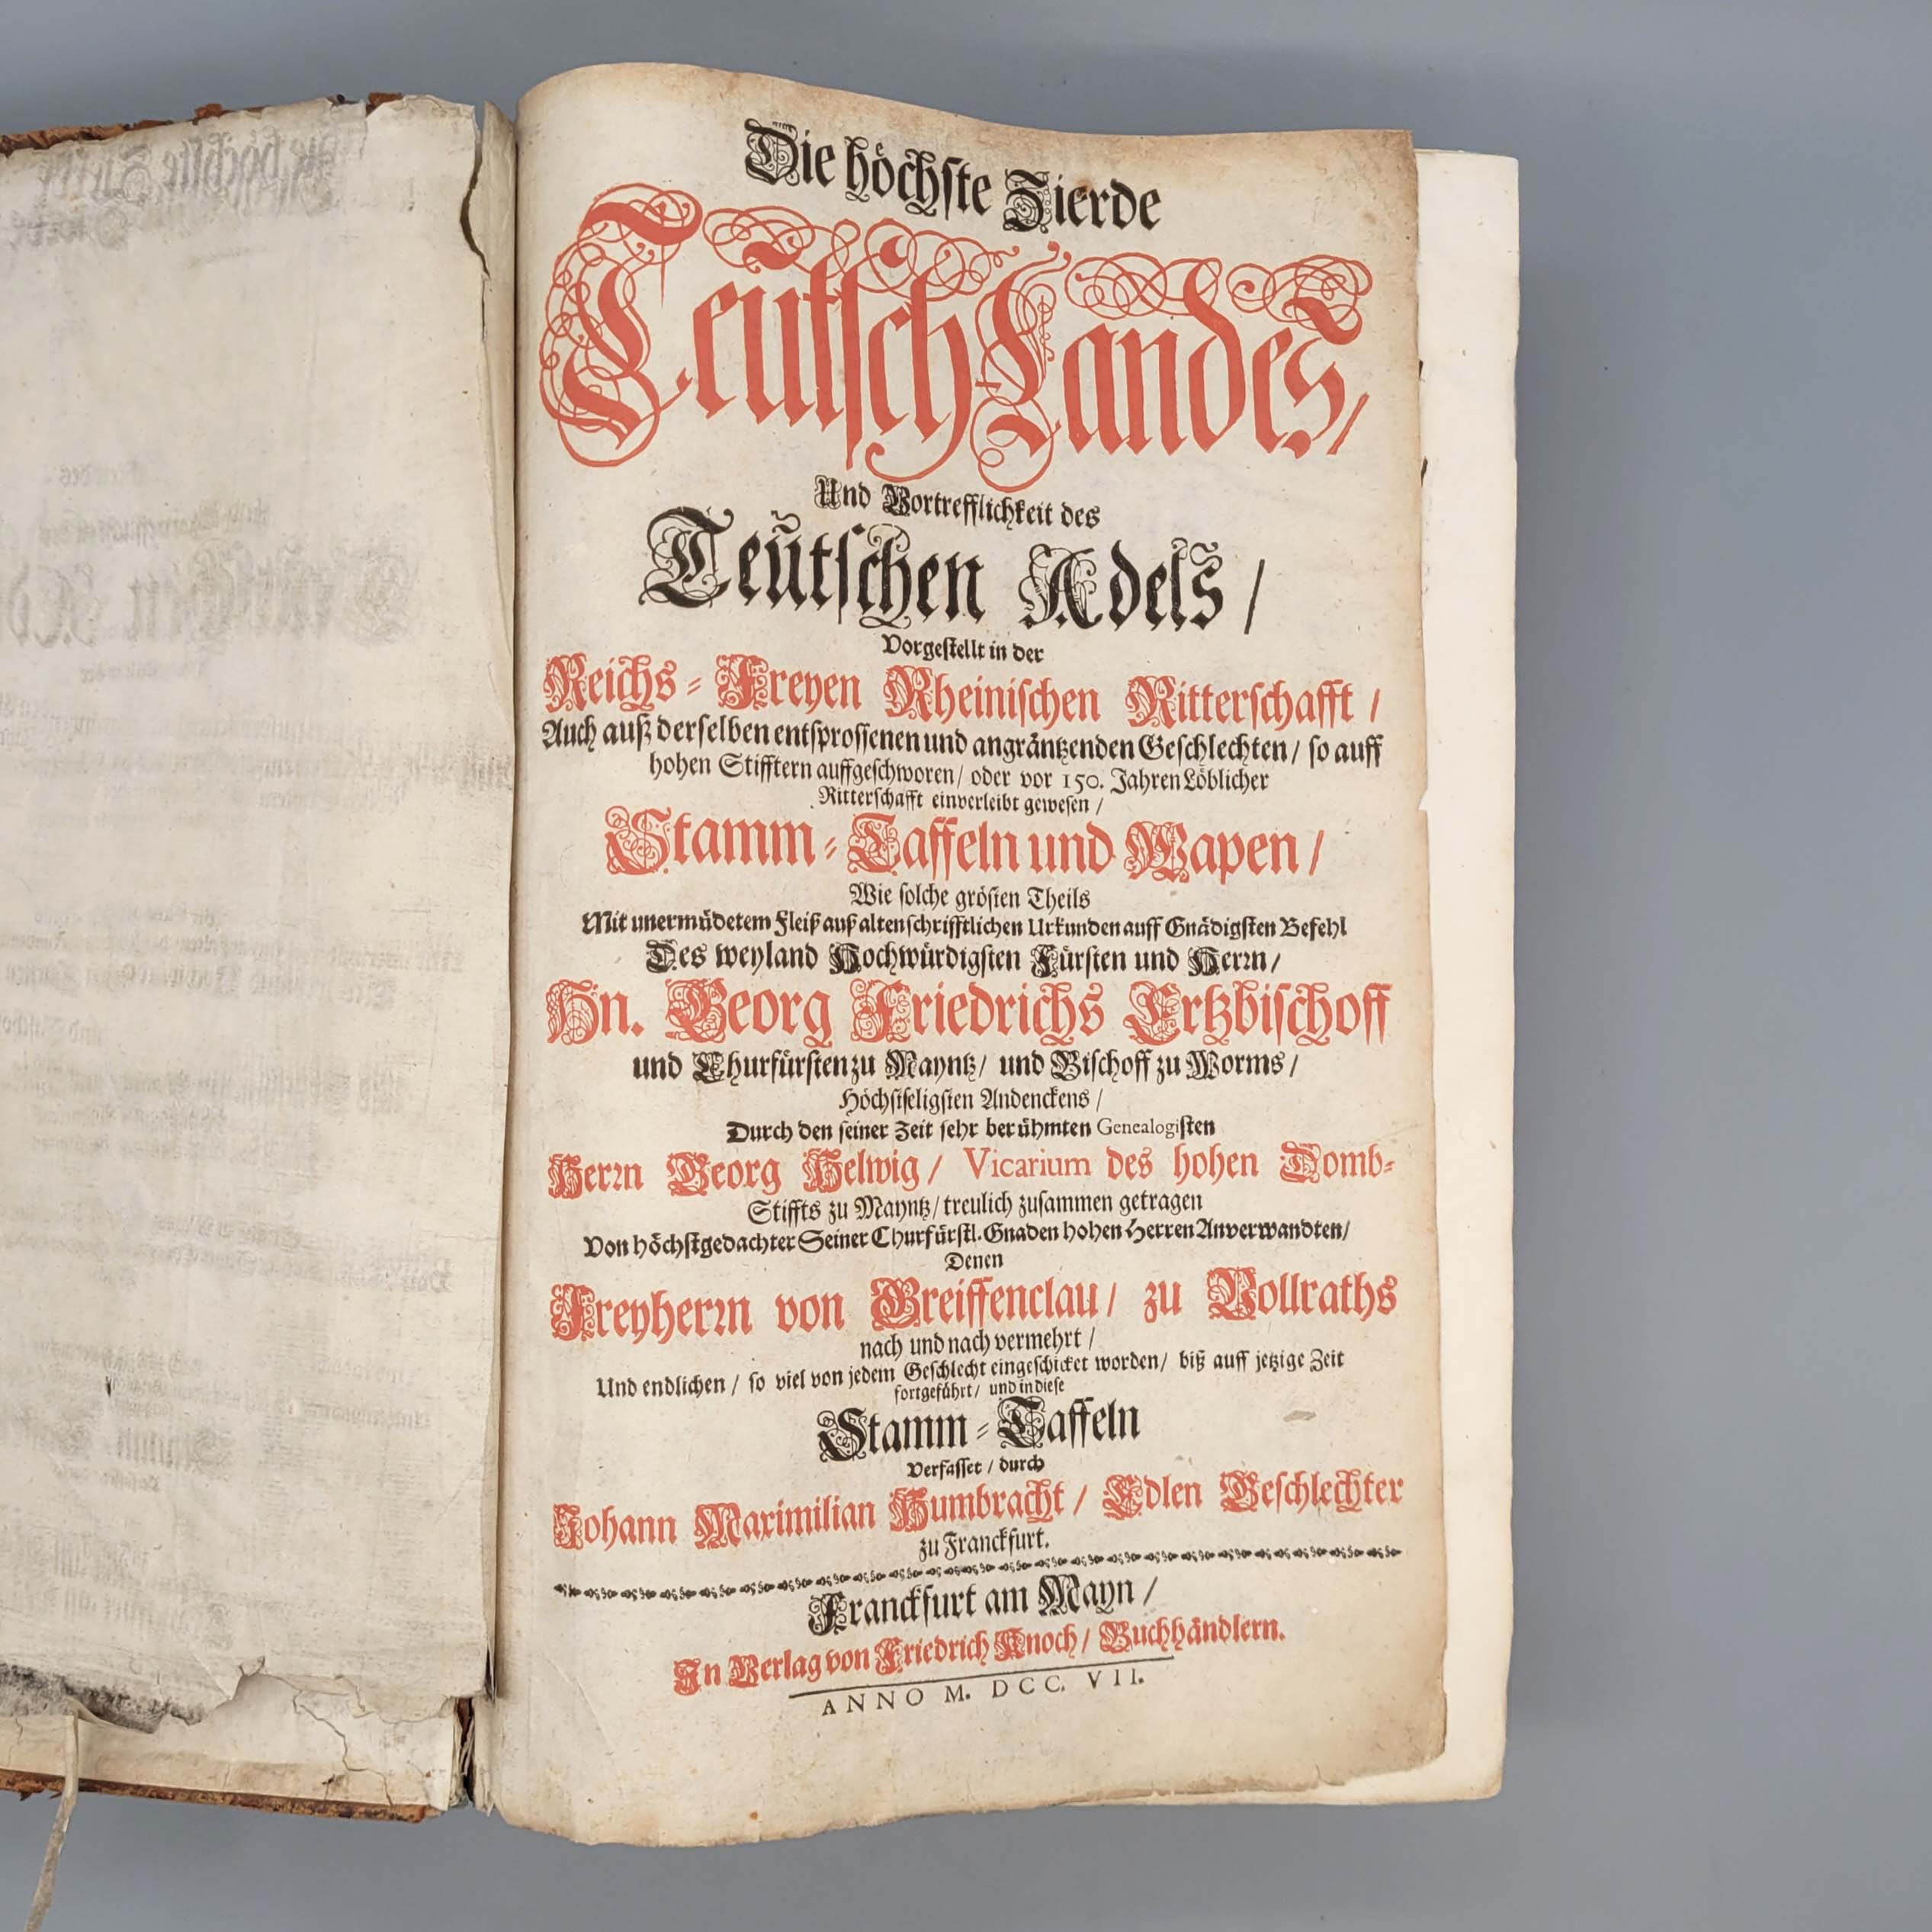 Die höchste Zierde
Teütsch Landes/
Und Vortrefflichkeit des
Teütschen Adels/
Vorgestellt in der
Reichs-Freyen Rheinischen Ritterschafft/
Auch auß derselben entsprossenen und angräntzenden Geschlechten/ so auff
hohen Stifftern auffgeschworen/ oder vor 150. Jahren Löblicher
Ritterschafft einverleibt gewesen/
Stamm-Taffeln und Wapen/
Wie solche grösten Theils
Mit unermüdetem Fleiß auß alten schrifftlichen Urkunden auff Gnädigsten Befehl
Des weyland Hochwürdigsten Fürsten und Herrn/
Hn. Georg Friedrichs Ertzbischoff
und Churfürsten zu Mayntz/ und Bischoff zu Worms/
Höchstseligsten Andenckens/
Durch den seiner Zeit sehr berühmten Genealogisten
Herrn Georg Helwig/ Vicarium des hohen Domb-
Stiffts zu Mayntz/ treulich zusammen getragen
Von höchstgedachter Seiner Churfürstl. Gnaden hohen Herren Anverwandten/
Denen
Freyherrn von Greiffenclau/ zu Vollraths
nach und nach vermehrt/
Und endlichen/ so viel von jedem Geschlecht eingeschicket worden/ biß auff jetzige Zeit
fortgeführt/ und in diese
Stamm-Taffeln
Verfasset/ durch
Johann Maximilian Humbracht/ Edlen Geschlechter
zu Franckfurt.
Franckfurt am Mayn/
In Verlag von Friedrich Knoch/ Buchhändlern.
ANNO M. DCC. VII.